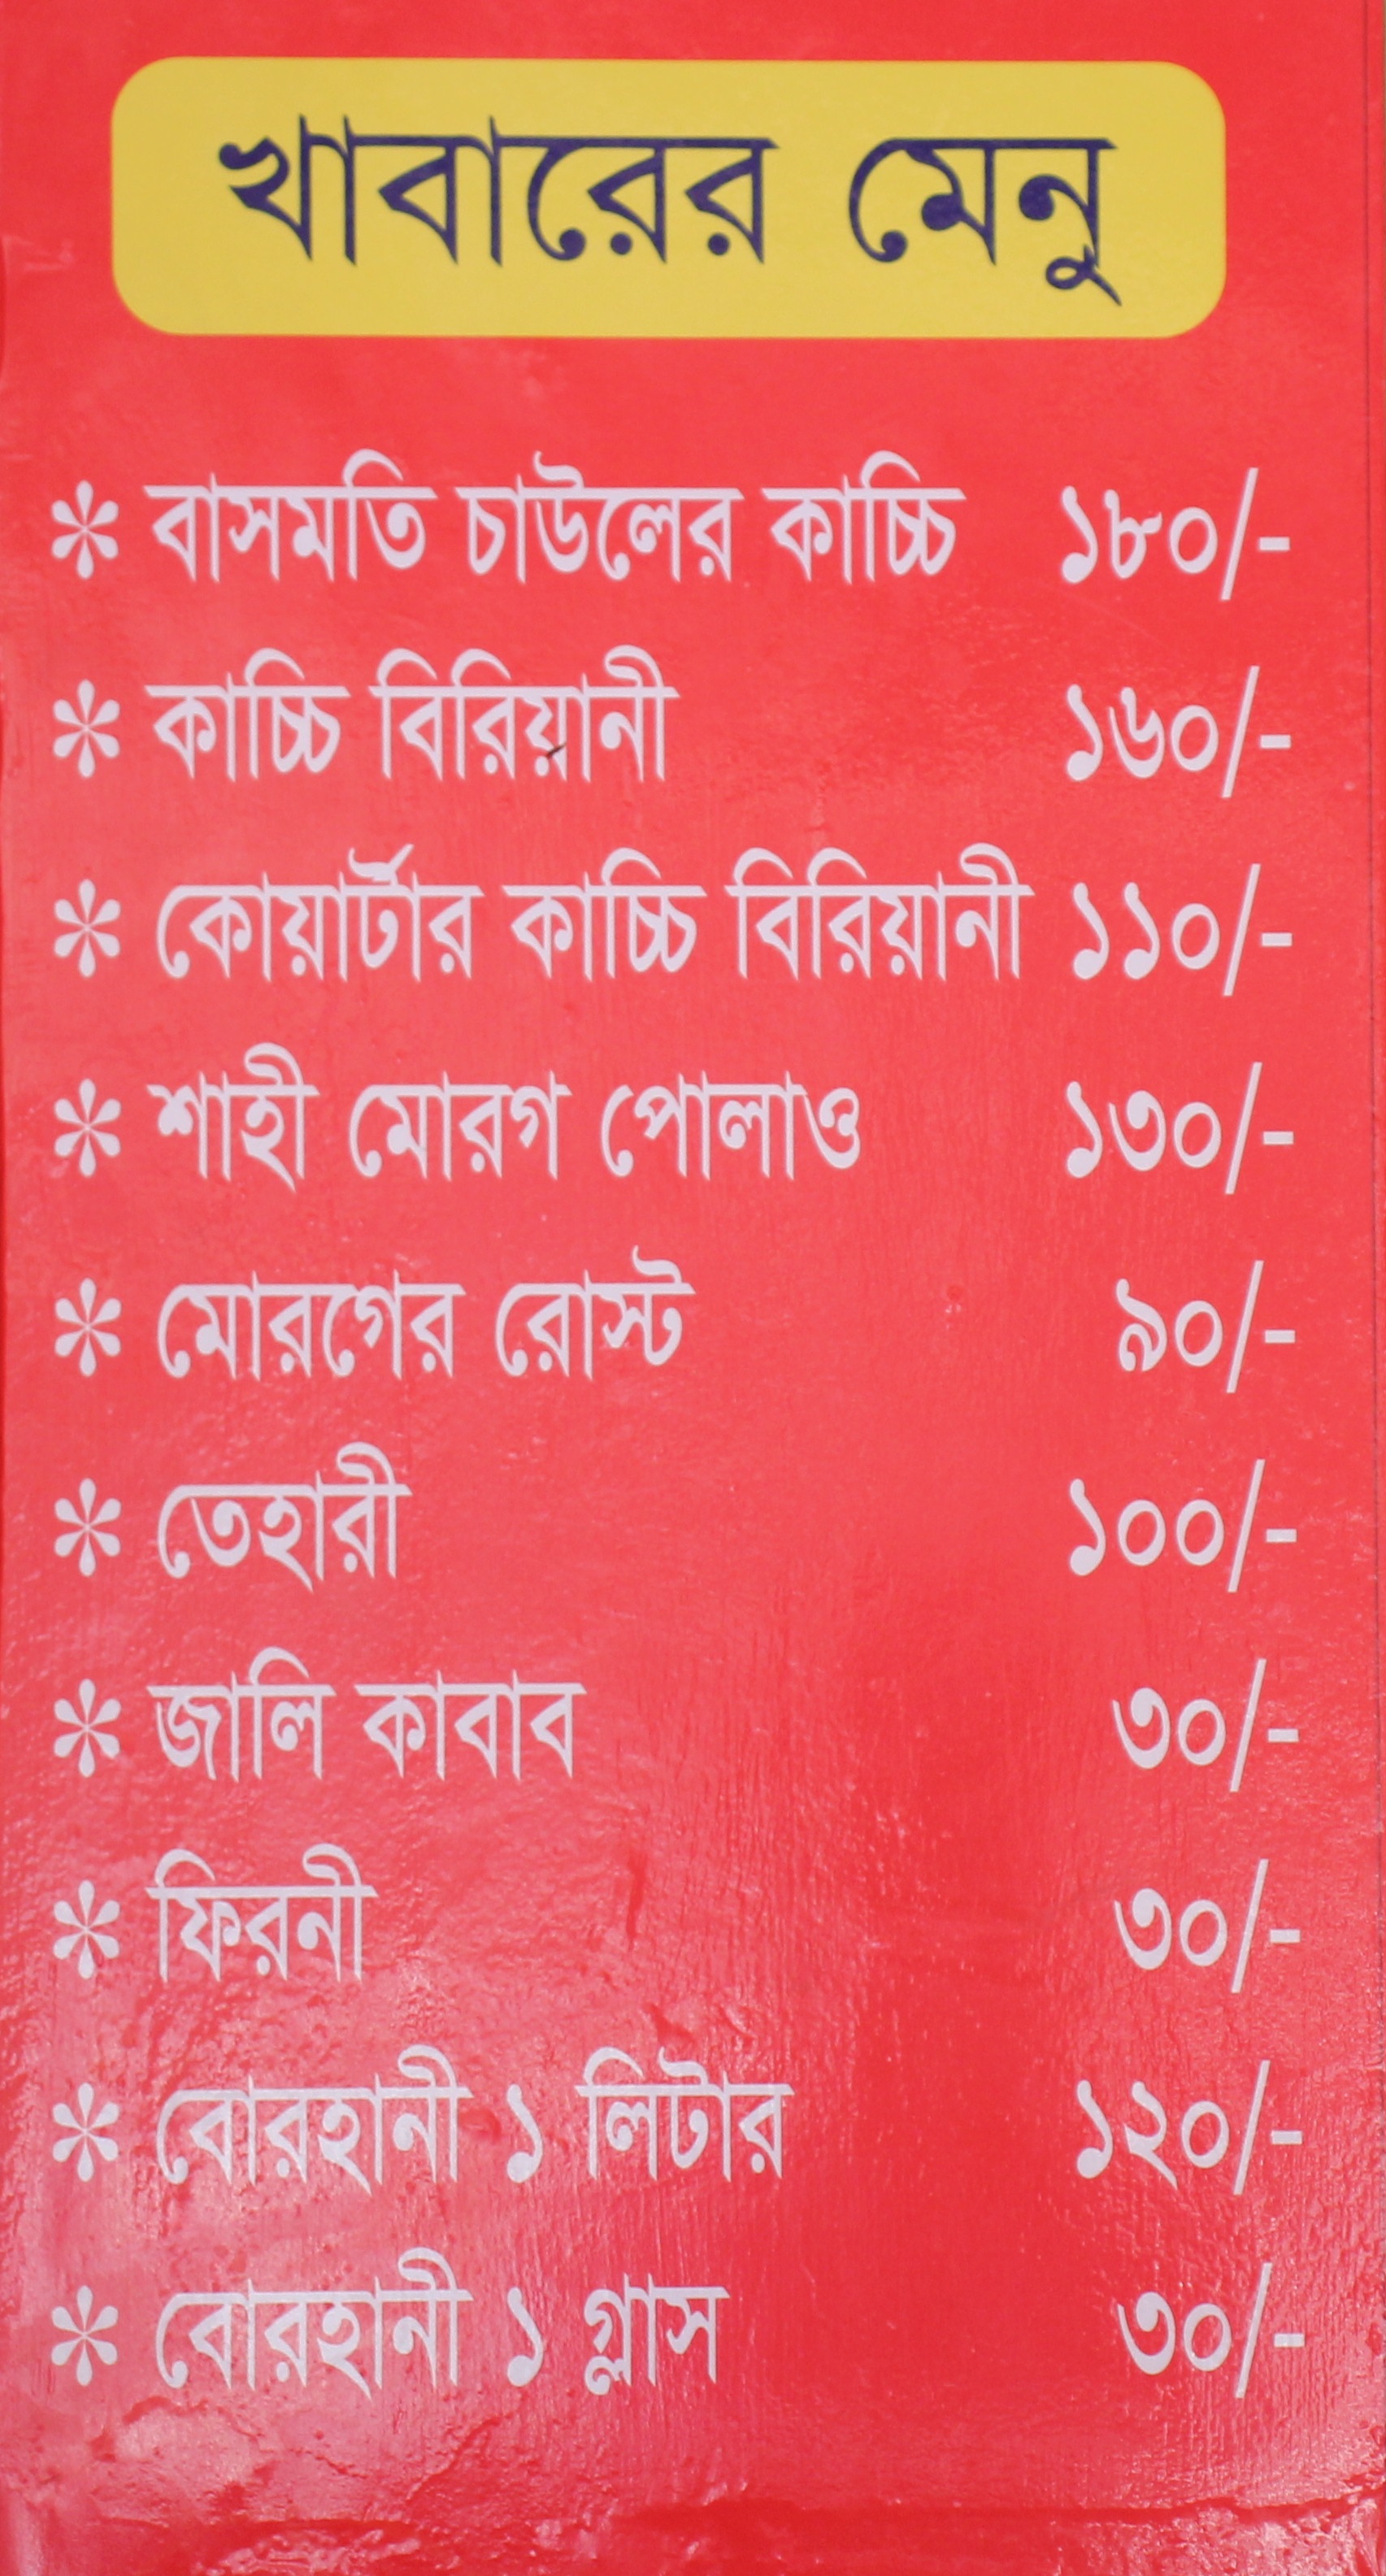 খাবারের মেনু
* বাসমতি চাউলের কাচ্চি ১৮০/-
* কাচ্চি বিরিয়ানী ১৬০/-
* কোয়ার্টার কাচ্চি বিরিয়ানী ১১০/-
* শাহী মোরগ পোলাও ১৩০/-
* মোরগের রোস্ট ৯০/-
* তেহারী ১০০/-
* জালি কাবাব ৩০/-
* ফিরনী ৩০/-
* বোরহানী ১ লিটার ১২০/-
* বোরহানী ১ গ্লাস ৩০/-